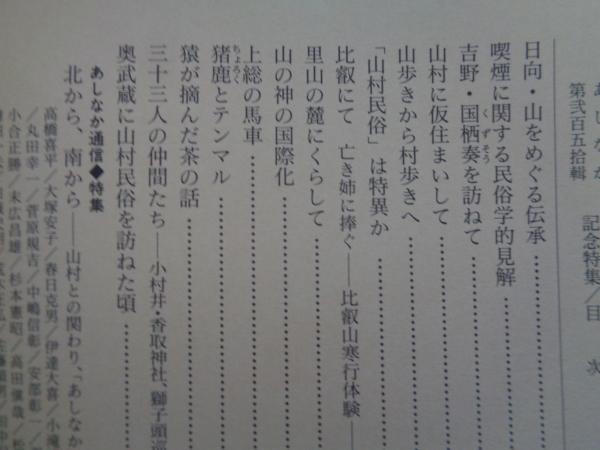 あしなか
第弐百五拾輯
記念特集／目 次
日向・山をめぐる伝承
喫煙に関する民俗学的見解
吉野・国栖奏を訪ねて
くずそう
山村に仮住まいして
山歩きから村歩きへ
「山村民俗」は特異か
比叡にて 亡き姉に捧ぐ――比叡山寒行体験――
里山の麓にくらして
山の神の国際化
上総の馬車
猪鹿とテンマル
ちょろく
猿が摘んだ茶の話
三十三人の仲間たち――小村井・香取神社、獅子頭
奥武蔵に山村民俗を訪ねた頃
あしなか通信◆特集
北から、南から――山村との関わり、「あしなか
高橋喜平／大塚安子／春日克男／伊達大喜／小滝
／丸田幸一／菅原規吉／中嶋信彰／安部彰一／
小合正勝／末広昌雄／杉本憲昭／高田慎哉／松